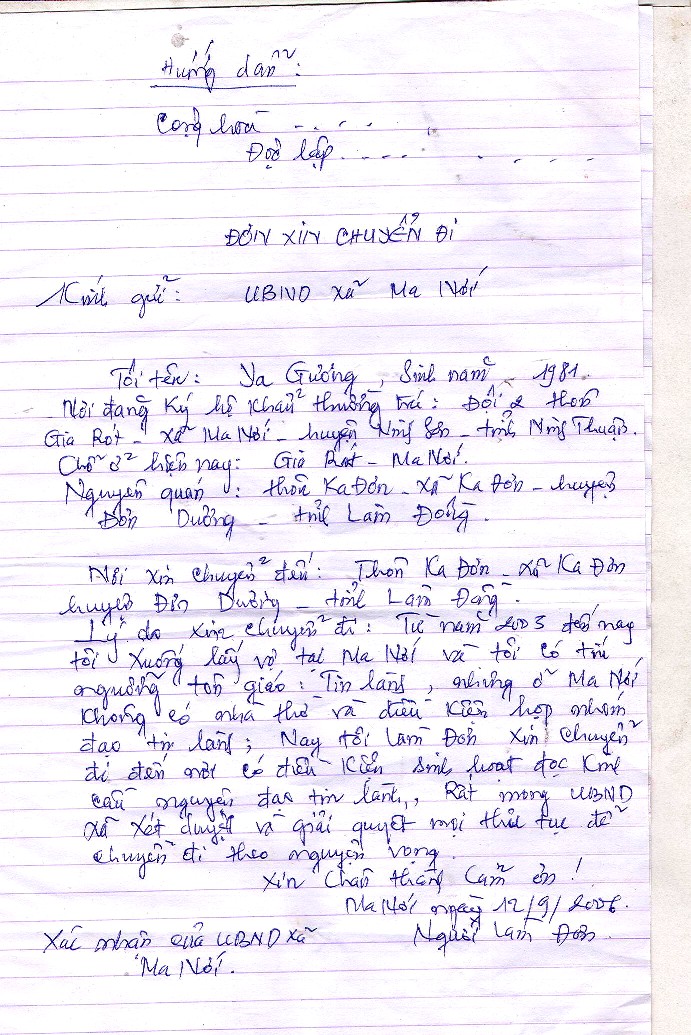 Hướng dẫn:
Cộng hoà .......
Độc lập ........
ĐƠN XIN CHUYỂN ĐI
Kính gửi: UBND xã Ma Nới
Tôi tên: Ya Gương, sinh năm 1981.
Nơi đăng ký hộ khẩu thường trú: Đội 2 thôn
Gia Rót - xã Ma Nới - huyện Ninh Sơn - tỉnh Ninh Thuận.
Chỗ ở hiện nay: Gia Rót - Ma Nới.
Nguyên quán: thôn Ka Đơn - xã Ka Đơn - huyện
Đơn Dương - tỉnh Lâm Đồng.
Nơi xin chuyển đến: Thôn Ka Đơn - xã Ka Đơn
huyện Đơn Dương - tỉnh Lâm Đồng.
Lý do xin chuyển đi: Từ năm 2003 đến nay
tôi xuống lấy vợ tại Ma Nới và tôi có tín
ngưỡng tôn giáo: Tin lành, nhưng ở Ma Nới
không có nhà thờ và điều kiện họp nhóm
đạo tin lành; Nay tôi làm Đơn xin chuyển
đi đến nơi có điều kiện sinh hoạt đọc kinh
cầu nguyện đạo tin lành, Rất mong UBND
xã xét duyệt và giải quyết mọi thủ tục để
chuyển đi theo nguyện vọng.
Xin Chân thành Cảm ơn!
Ma Nới ngày 12/9/2006.
Xác nhận của UBND xã Người làm Đơn.
Ma Nới.